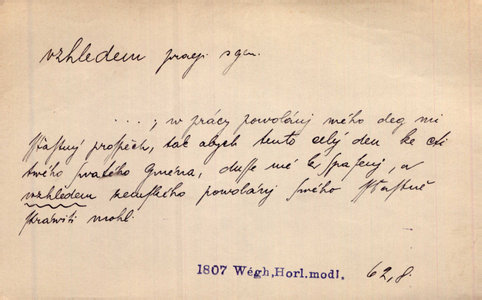 vzhledem praep. s gen.
...; w prácy powolánj mého deg mi
sstiastný prospěch, tak abych tento celý den ke cti
twého swatého gména, dusse mé k spasenj, a
vzhledem zemského powolánj swého sstiastně
ztráwiti mohl.
1807 Wégh,Horl.modl. 62,8.